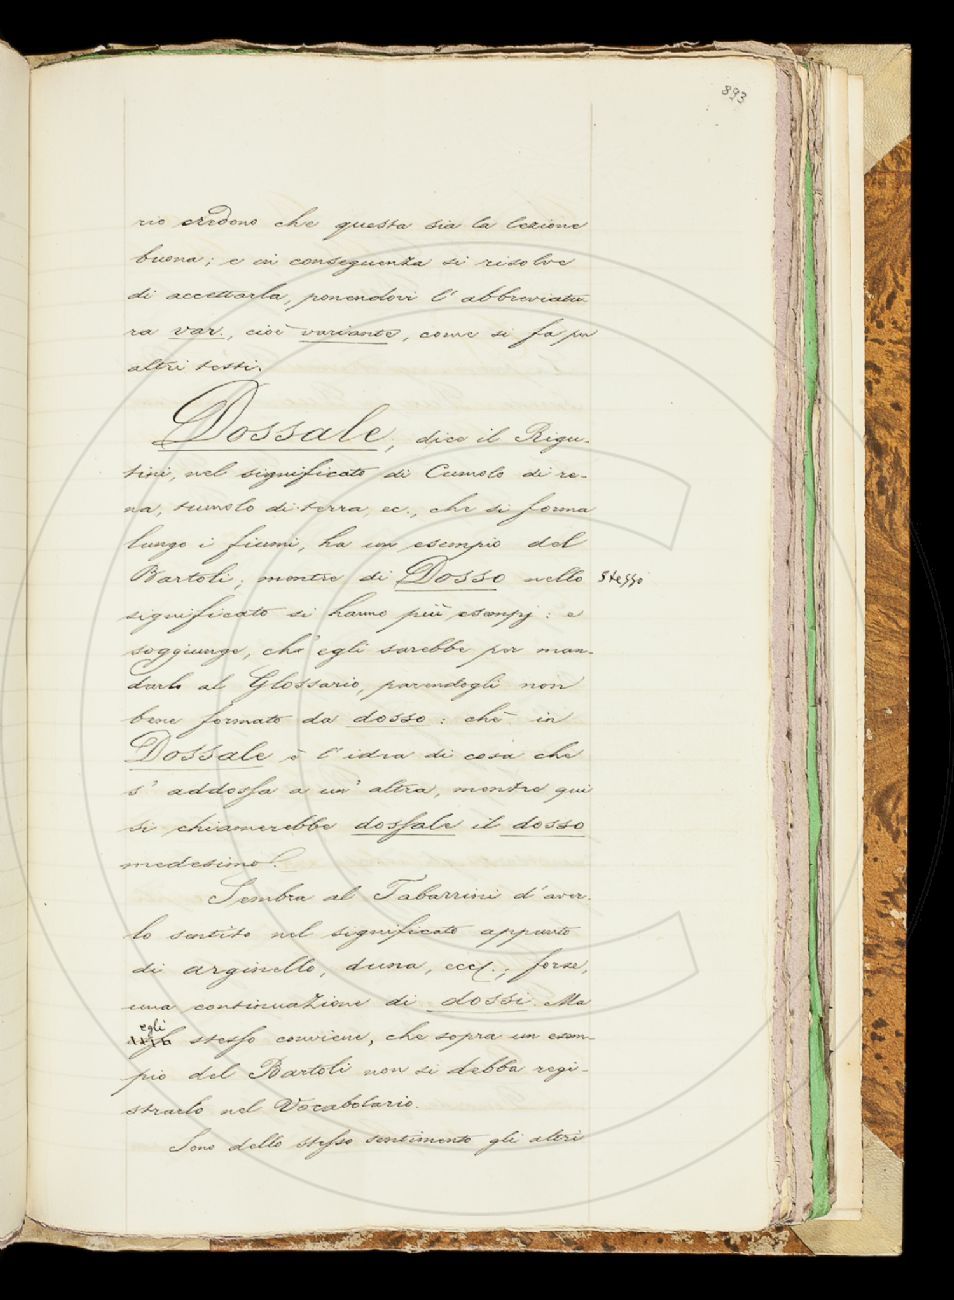 893
rio credono che questa sia la lezione
buona; e in conseguenza si risolve
di accettarla, ponendovi l'abbreviatu-
ra var., cioè variante, come si fa per
altri testi.
Dossale, dice il Rigu-
tini, nel significato di Cumolo di re-
na, tumolo di terra, ec., che si forma
lungo i fiumi, ha un esempio del
Bartoli; mentre di Dosso nello stesso
significato si hanno più esempj: e
soggiunge, ch'egli sarebbe per man-
darlo al Glossario, parendogli non
bene formato da dosso: chè in
Dossale è l'idea di cosa che
s'addossa a un'altra, mentre qui
si chiamerebbe dossale il dosso
medesimo.
Sembra al Tabarrini d'aver-
lo sentito nel significato appunto
di arginello, duna, ecc., forse,
una continuazione di dossi. Ma
egli stesso conviene, che sopra un esem-
pio del Bartoli non si debba regi-
strarlo nel Vocabolario.
Sono dello stesso sentimento gli altri